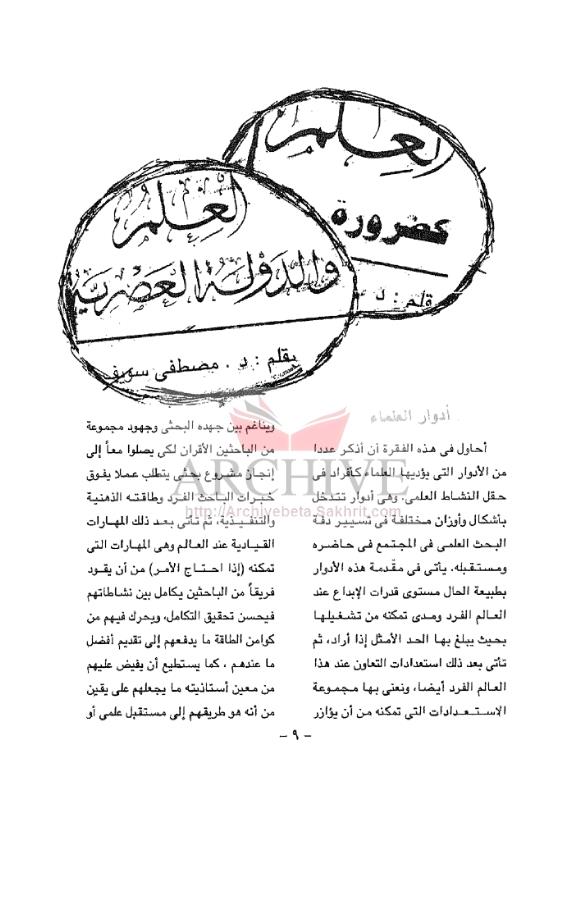 العلم
كضرورة
بقلم : د
العلم
والدولة العصرية
بقلم : د . مصطفى سويف
أدوار العلماء
أحاول فى هذه الفقرة أن أذكر عددا
من الأدوار التى يؤديها العلماء كأفراد فى
حقل النشاط العلمى. وهى أدوار تتدخل
بأشكال وأوزان مختلفة فى تسيير دفة
البحث العلمى فى المجتمع فى حاضره
ومستقبله. يأتى فى مقدمة هذه الأدوار
بطبيعة الحال مستوى قدرات الإبداع عند
العالم الفرد ومدى تمكنه من تشغيلها
بحيث يبلغ بها الحد الأمثل إذا أراد، ثم
تأتى بعد ذلك استعدادات التعاون عند هذا
العالم الفرد أيضا، ونعنى بها مجموعة
الاستعدادات التى تمكنه من أن يؤازر
ويناغم بين جهده البحثى وجهود مجموعة
من الباحثين الأقران لكى يصلوا معاً إلى
إنجاز مشروع بحثى يتطلب عملا يفوق
خبرات الباحث الفرد وطاقته الذهنية
والتنفيذية، ثم تأتى بعد ذلك المهارات
القيادية عند العالم وهى المهارات التى
تمكنه (إذا احتاج الأمر) من أن يقود
فريقاً من الباحثين يكامل بين نشاطاتهم
فيحسن تحقيق التكامل، ويحرك فيهم من
كوامن الطاقة ما يدفعهم إلى تقديم أفضل
ما عندهم ، كما يستطيع أن يفيض عليهم
من معين أستاذيته ما يجعلهم على يقين
من أنه هو طريقهم إلى مستقبل علمى أو
- ٩ -
ARCHIVE
http://Archivebeta.Sakhrit.com